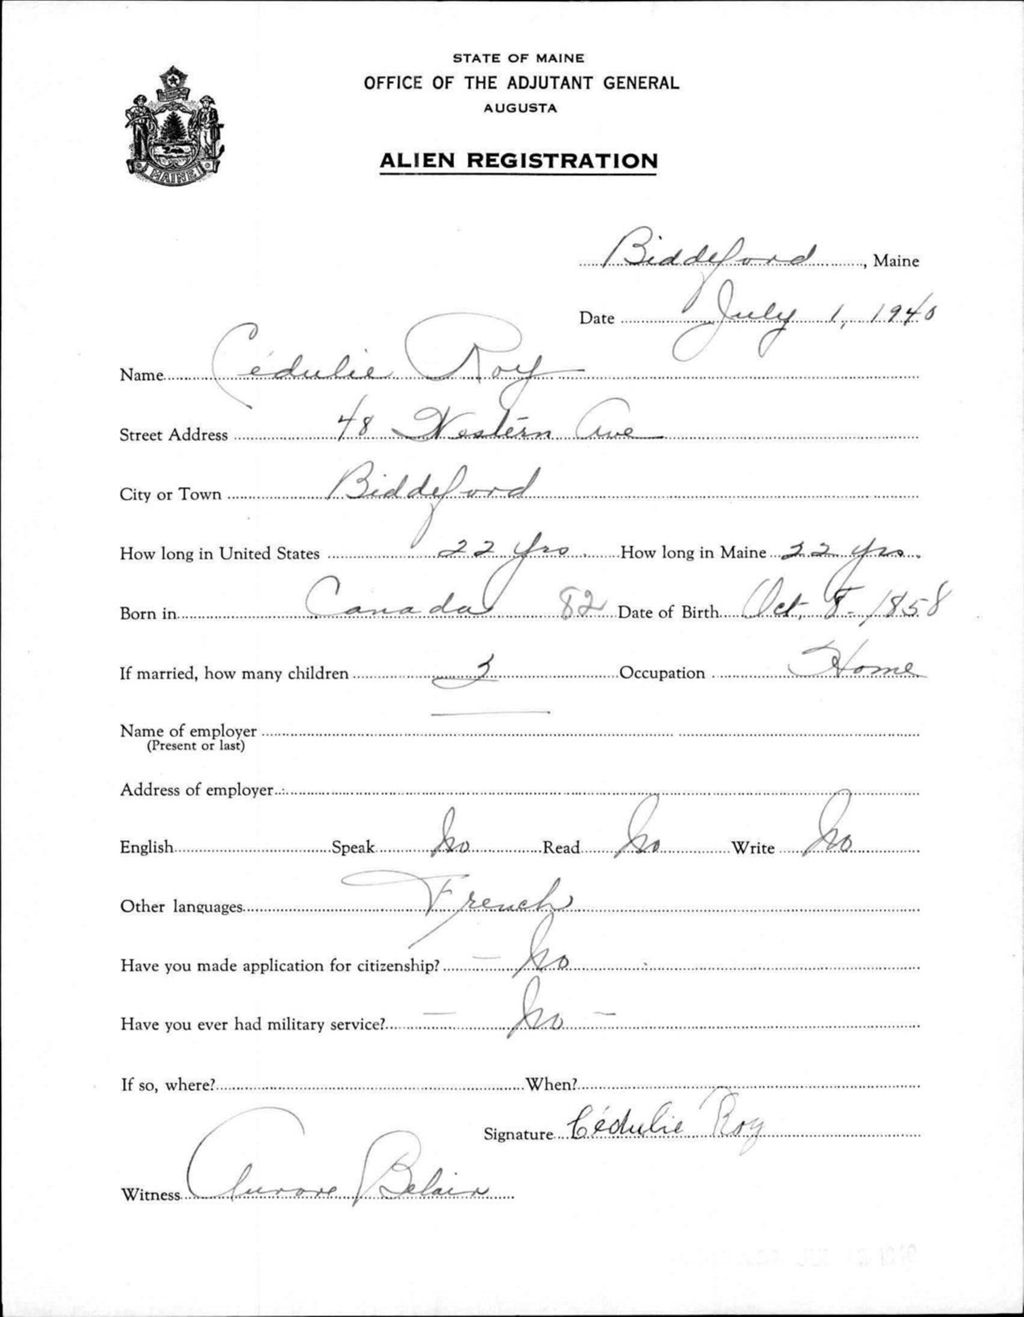 STATE OF MAINE
OFFICE OF THE ADJUTANT GENERAL
AUGUSTA
ALIEN REGISTRATION
MAINE
Biddeford, Maine
Date July 1, 1940
Name Cédulie Roy
Street Address 48 Western Ave
City or Town Biddeford
How long in United States 22 yrs How long in Maine 22 yrs.
Born in Canada 82 Date of Birth Oct. 8 - 1858
If married, how many children 3 Occupation Home
Name of employer
(Present or last)
Address of employer
English Speak No Read No Write No
Other languages French
Have you made application for citizenship? — No
Have you ever had military service? — No —
If so, where? When?
Signature Cédulie Roy
Witness Aurore Belair